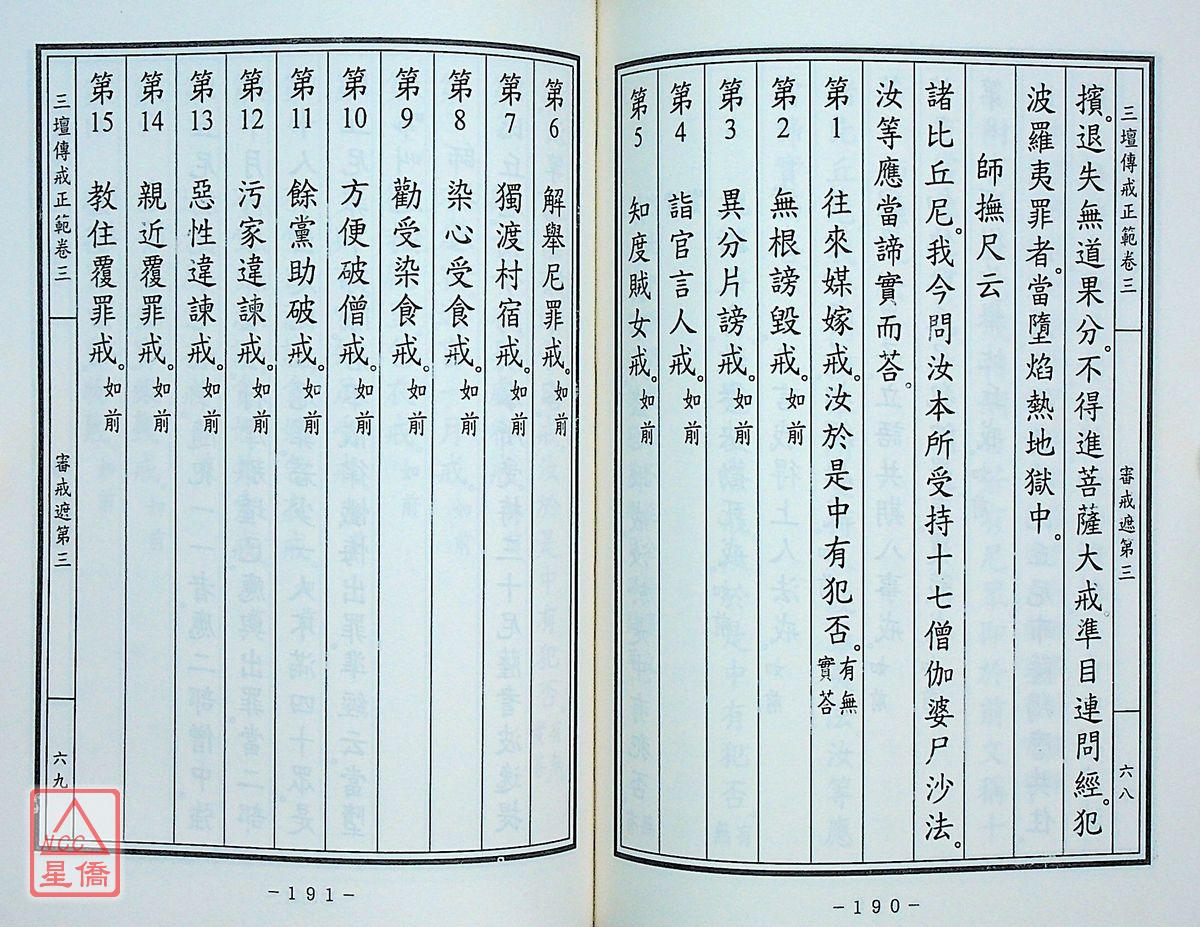 三壇傳戒正範卷三
審戒遮第三
六八
擯。退失無道果分。不得進菩薩大戒。準目連問經。犯
波羅夷罪者。當墮焰熱地獄中。
師撫尺云
諸比丘尼。我今問汝本所受持十七僧伽婆尸沙法。
汝等應當諦實而荅。
第1 往來媒嫁戒。汝於是中有犯否。有無實荅
第2 無根謗毀戒。如前
第3 異分片謗戒。如前
第4 詣官言人戒。如前
第5 知度賊女戒。如前
-190-
第6 解舉尼罪戒。如前
第7 獨渡村宿戒。如前
第8 染心受食戒。如前
第9 勸受染食戒。如前
第10 方便破僧戒。如前
第11 餘黨助破戒。如前
第12 污家違諫戒。如前
第13 惡性違諫戒。如前
第14 親近覆罪戒。如前
第15 教住覆罪戒。如前
三壇傳戒正範卷三
審戒遮第三
六九
-191-
NCC
星僑